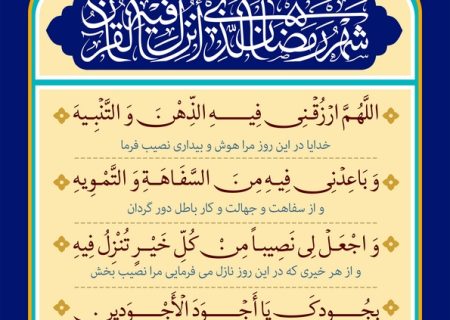 شَهْرُ رَمَضَانَ الَّذِي أُنْزِلَ فِيهِ الْقُرْآنُ
اَللَّهُمَّ ارْزُقْنِی فِیهِ الذِّهْنَ وَ التَّنْبِیهَ
خدایا در این روز مرا هوش و بیداری نصیب فرما
وَ بَاعِدْنِی فِیهِ مِنَ السَّفَاهَةِ وَ التَّمْوِیهِ
و از سفاهت و جهالت و کار باطل دور گردان
وَ اجْعَلْ لِی نَصِیباً مِنْ کُلِّ خَیْرٍ تُنْزِلُ فِیهِ
و از هر خیری که در این روز نازل می فرمایی مرا نصیب بخش
بِجُودِکَ یَا أَجْوَدَ الْأَجْوَدِینَ .